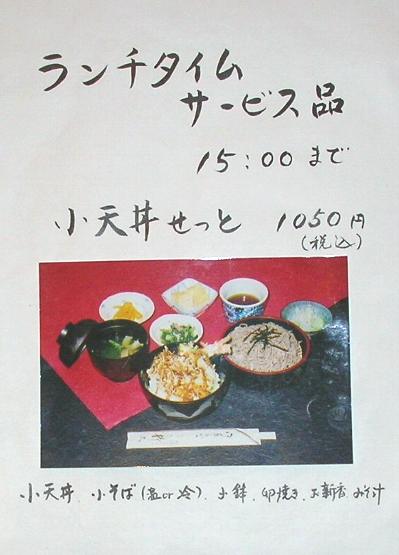 ランチタイム
サービス品
15:00まで
小天丼せっと 1050円
(税込)
小天丼、小そば(温or冷)、小鉢、卵焼き、お新香、みそ汁